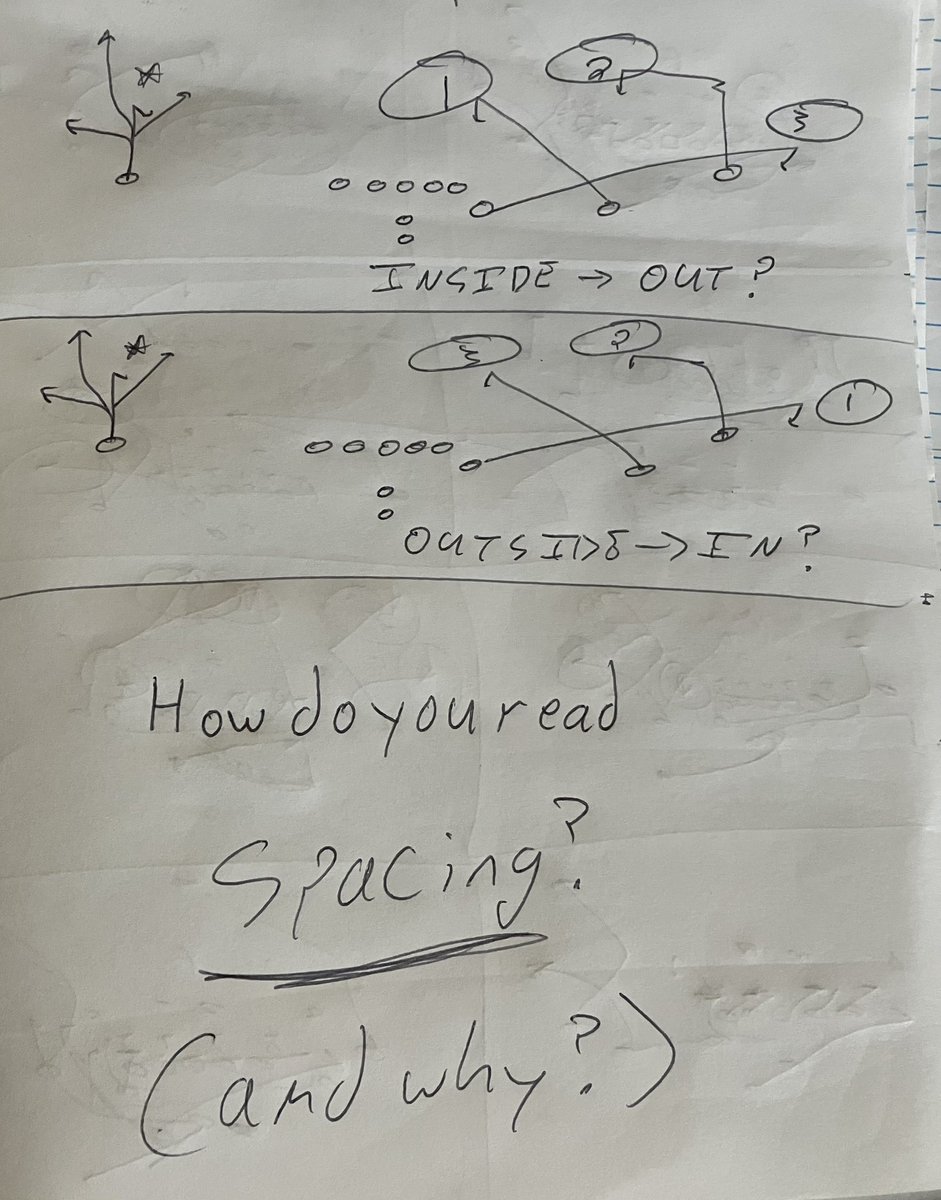 1 2 3
INSIDE → OUT?
3 2 1
OUTSIDE → IN?
How do you read
Spacing?
(and why?)